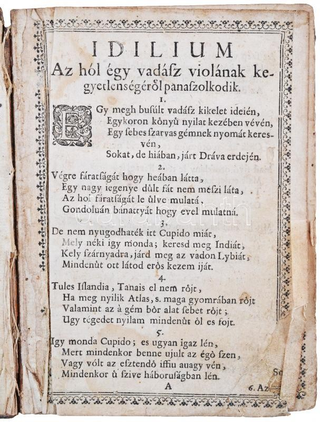 IDILIUM
Az hól égy vadász violának ke-
gyetlenségéről panaszolkodik.
1.
EGy megh busúlt vadász kikelet ideién,
Egykoron kőnyű nyilat kezében vévén,
Egy sebes szarvas gémnek nyomát keres-
vén,
Sokat, de hiában, járt Dráva erdején.
2.
Végre fáratságát hogy heában látta,
Egy nagy iegenye dűlt fát nem meszi láta,
Az hol fáratságát le űlve mulatá.
Gondoluán bánattyát hogy evel mulatná.
3.
De nem nyugodhaték itt Cupido miát,
Mely néki igy monda; keresd meg Indiát,
Kely szárnyadra, járd meg az vadon Lybiát,
Mindenűt ott látod erős kezem iját.
4.
Tules Islandia, Tanais el nem rőjt,
Ha meg nyilik Atlas, s. maga gyomrában rőjt
Valamint az à gém bőr alat sebet rőjt;
Ugy tégedet nyilam mindenűt ől es fojt.
5.
Igy monda Cupido; es ugyan igaz lén,
Mert mindenkor benne ujult az égő szen,
Vagy vólt az esztendő iffiu auagy vén,
Mindenkor ű szive háboruságban lén.
A
6. Az